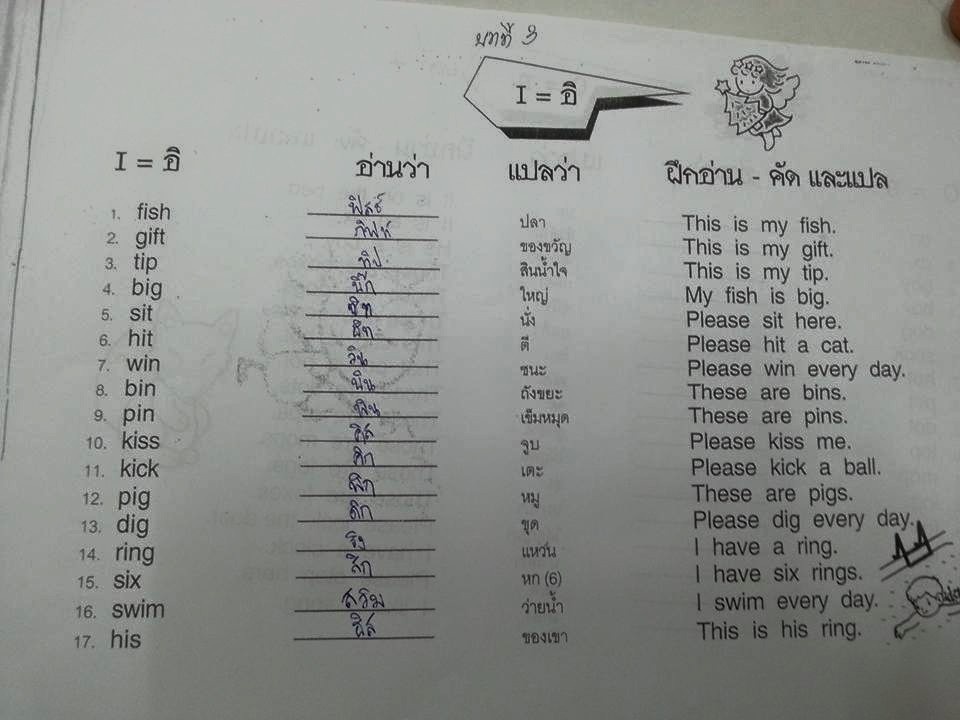 บทที่ 3
I = อิ
I = อิ อ่านว่า แปลว่า ฝึกอ่าน - คัด และแปล
1. fish ฟิสช์ ปลา This is my fish.
2. gift กิฟท์ ของขวัญ This is my gift.
3. tip ทิป สินน้ำใจ This is my tip.
4. big บิ๊ก ใหญ่ My fish is big.
5. sit ซิท นั่ง Please sit here.
6. hit ฮิท ตี Please hit a cat.
7. win วิน ชนะ Please win every day.
8. bin บิน ถังขยะ These are bins.
9. pin พิน เข็มหมุด These are pins.
10. kiss คิส จูบ Please kiss me.
11. kick คิก เตะ Please kick a ball.
12. pig พิก หมู These are pigs.
13. dig ดิก ขุด Please dig every day.
14. ring ริง แหวน I have a ring.
15. six หก (6) I have six rings.
16. swim สวิม ว่ายน้ำ I swim every day.
17. his ฮิส ของเขา This is his ring.